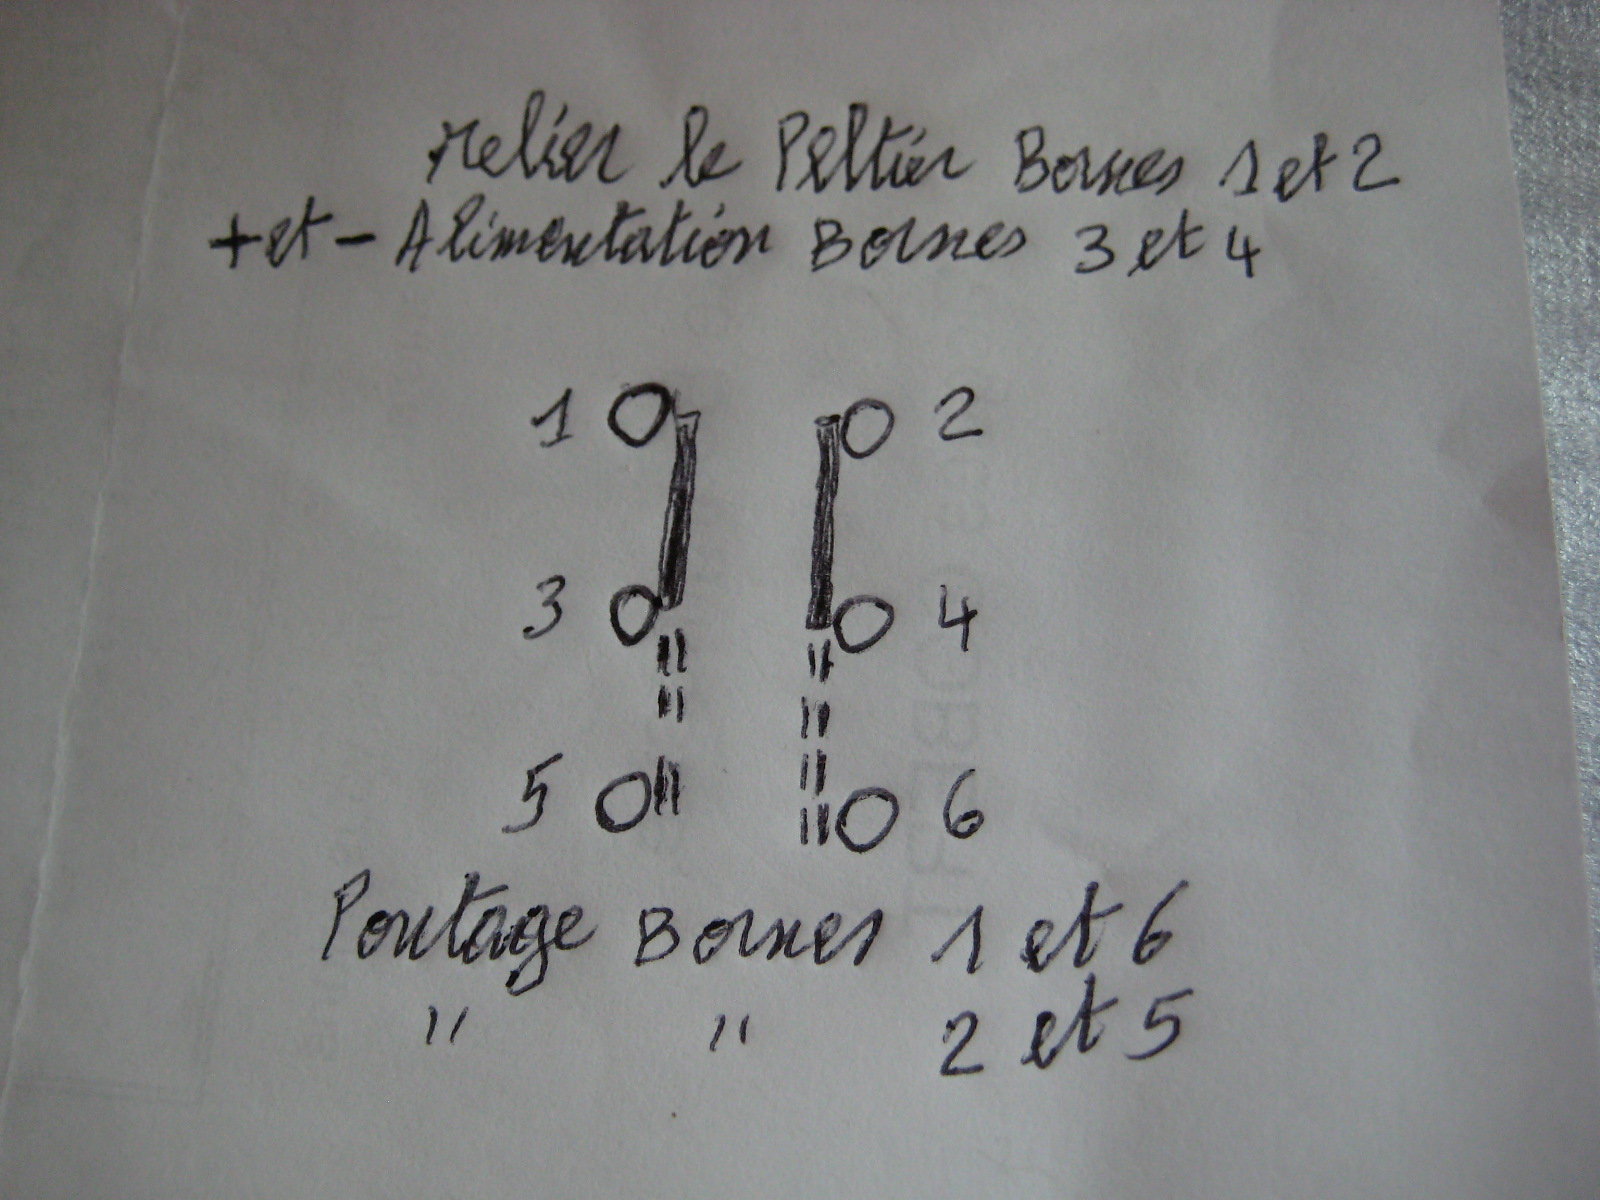 relier le Peltier Bornes 1 et 2
+ et - Alimentation Bornes 3 et 4
1 2
3 4
5 6
Pontage Bornes 1 et 6
" " 2 et 5